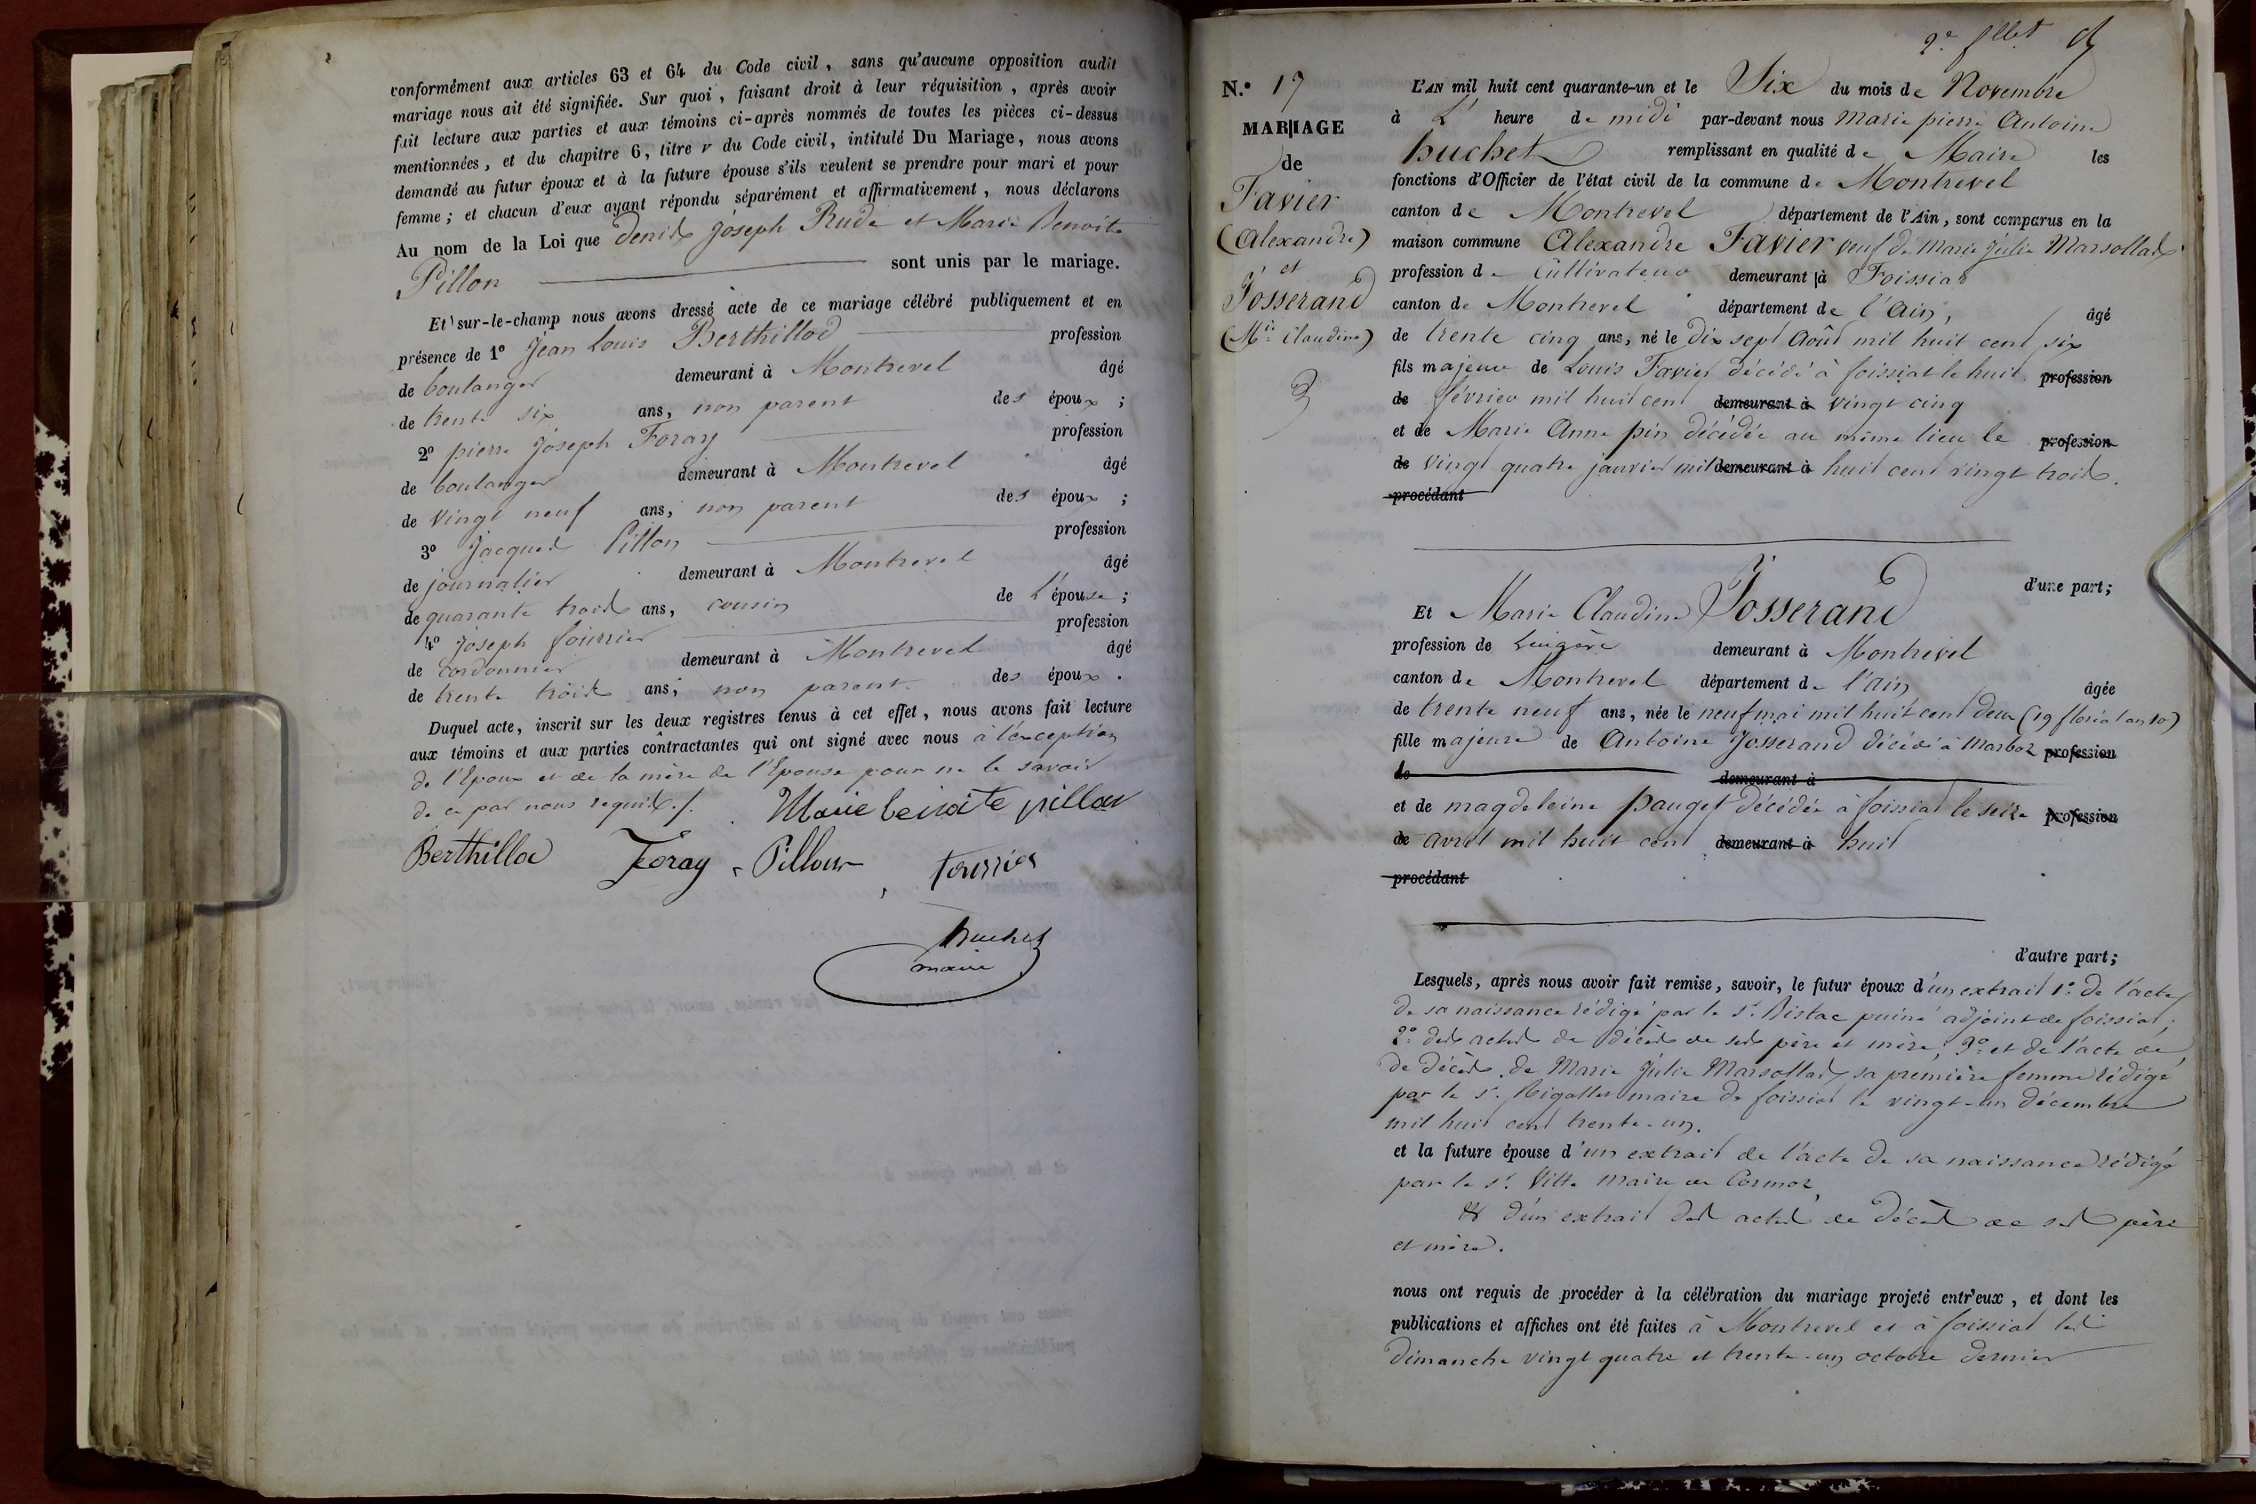 conformément aux articles 63 et 64 du Code civil, sans qu'aucune opposition audit
mariage nous ait été signifiée. Sur quoi, faisant droit à leur réquisition, après avoir
fait lecture aux parties et aux témoins ci-après nommés de toutes les pièces ci-dessus
mentionnées, et du chapitre 6, titre v du Code civil, intitulé Du Mariage, nous avons
demandé au futur époux et à la future épouse s'ils veulent se prendre pour mari et pour
femme; et chacun d'eux ayant répondu séparément et affirmativement, nous déclarons
Au nom de la Loi que denis Joseph Rude et Marie Benoite
Pillon sont unis par le mariage.
Et sur-le-champ nous avons dressé acte de ce mariage célébré publiquement et en
présence de 1º Jean Louis Berthillod profession
de boulanger demeurant à Montrevel âgé
de trente six ans, non parent des époux;
2º pierre Joseph Foray profession
de boulanger demeurant à Montrevel âgé
de vingt neuf ans, non parent des époux;
3º Jacques Pillon profession
de journalier demeurant à Montrevel âgé
de quarante trois ans, cousin de L'épouse;
4º Joseph fourrier profession
de cordonnier demeurant à Montrevel âgé
de trente trois ans, non parent des époux.
Duquel acte, inscrit sur les deux registres tenus à cet effet, nous avons fait lecture
aux témoins et aux parties contractantes qui ont signé avec nous à l'exception
de l'Epoux et de la mère de l'Epouse pour ne le savoir
de ce par nous requis./.
Marie benoite pillon
Berthillod Foray Pillon fourrier
huchet
maire
2e fllet
N.º 17
MARIAGE
de
Favier
(Alexandre)
et
Josserand
(Mie Claudine)
L'AN mil huit cent quarante-un et le Six du mois de Novembre
à L' heure de midi par-devant nous Marie pierre Antoine
huchet remplissant en qualité de Maire les
fonctions d'Officier de l'état civil de la commune de Montrevel
canton de Montrevel département de l'Ain, sont comparus en la
maison commune Alexandre Favier veuf de Marie Julie Marsollat
profession de Cultivateur demeurant à Foissiat
canton de Montrevel département de l'ain, âgé
de trente cinq ans, né le dix sept Août mil huit cent six
fils majeur de Louis Favier décédé à foissiat le huit profession
de février mil huit cent demeurant à vingt cinq
et de Marie Anne pin décédée au même lieu le profession
de vingt quatre janvier mil demeurant à huit cent vingt trois.
procédant
d'une part;
Et Marie Claudine Josserand
profession de Lingère demeurant à Montrevel
canton de Montrevel département de l'ain âgée
de trente neuf ans, née le neuf mai mil huit cent deux (19 floréal an 10)
fille majeure de Antoine Josserand décédé à Marboz profession
de demeurant à
et de magdeleine pauget décédée à foissiat le seize profession
de avril mil huit cent demeurant à huit
procédant
d'autre part;
Lesquels, après nous avoir fait remise, savoir, le futur époux d'un extrait 1º de l'acte
de sa naissance rédigé par le Sr. Bistac puiné adjoint de foissiat;
2º des actes de décès de ses père et mère; 3º et de l'acte de
de décès de Marie Julie Marsollat sa première femme rédigé
par le Sr. Rigollet maire de foissiat le vingt-un décembre
mil huit cent trente-un.
et la future épouse d'un extrait de l'acte de sa naissance rédigé
par le Sr. Vitte maire de Cormoz
et d'un extrait des actes de décès de ses père
et mère.
nous ont requis de procéder à la célébration du mariage projeté entr'eux, et dont les
publications et affiches ont été faites à Montrevel et à foissiat les
dimanche vingt quatre et trente-un octobre dernier